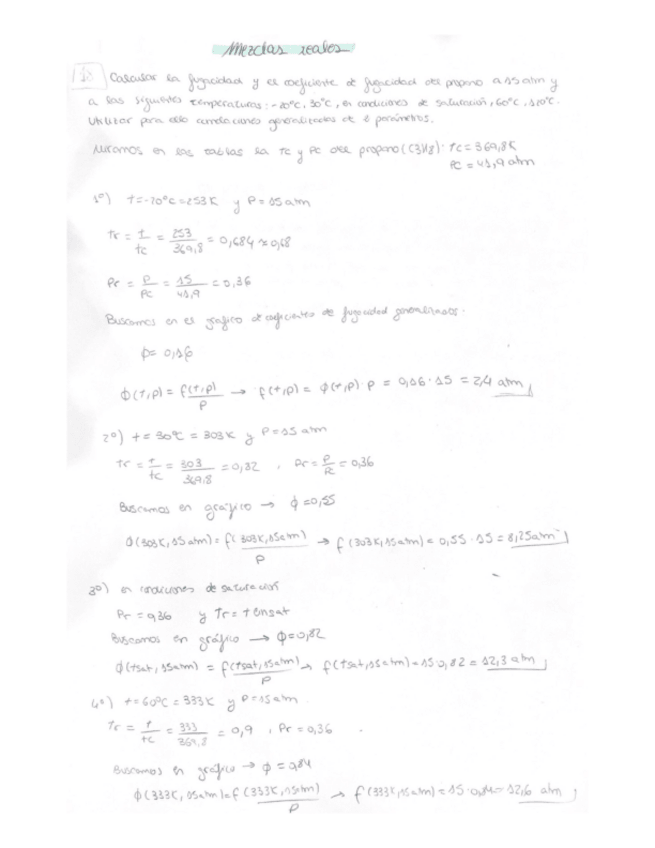 Mezclas reales
18 Calcular la fugacidad y el coeficiente de fugacidad del propano a 15 atm y
a las siguientes temperaturas: -20ºC, 30ºC, en condiciones de saturación, 60ºC, 110ºC.
Utilizar para ello correlaciones generalizadas de 2 parámetros.
Miramos en las tablas la Tc y Pc del propano (C3H8): Tc = 369,8K
Pc = 41,9 atm
1º) t = -20ºC = 253K y P = 15 atm
Tr = t/tc = 253/369,8 = 0,684 ≈ 0,68
Pr = P/Pc = 15/41,9 = 0,36
Buscamos en el gráfico de coeficientes de fugacidad generalizados.
ϕ = 0,16
ϕ(t,p) = f(t,p)/P → f(t,p) = ϕ(t,p)·P = 0,16·15 = 2,4 atm
2º) t = 30ºC = 303K y P = 15 atm
Tr = t/tc = 303/369,8 = 0,82 , Pr = P/Pc = 0,36
Buscamos en gráfico → ϕ = 0,55
ϕ(303K, 15atm) = f(303K, 15atm)/P → f(303K, 15atm) = 0,55·15 = 8,25 atm
3º) en condiciones de saturación
Pr = 0,36 y Tr = t en sat
Buscamos en gráfico → ϕ = 0,82
ϕ(tsat, 15atm) = f(tsat, 15atm)/P → f(tsat, 15atm) = 15·0,82 = 12,3 atm
4º) t = 60ºC = 333K y P = 15 atm
Tr = t/tc = 333/369,8 = 0,9 , Pr = 0,36
Buscamos en gráfico → ϕ = 0,84
ϕ(333K, 15atm) = f(333K, 15atm)/P → f(333K, 15atm) = 15·0,84 = 12,6 atm